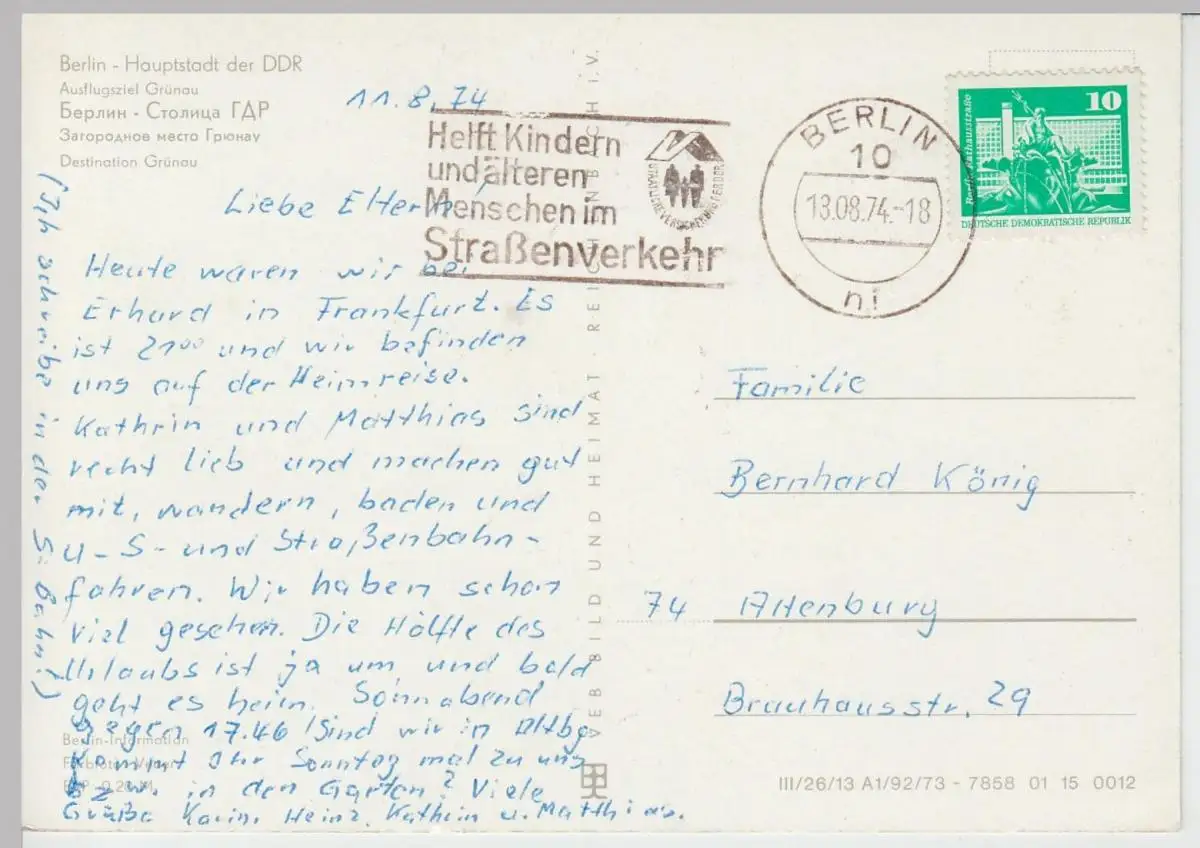 Berlin - Hauptstadt der DDR
Ausflugsziel Grünau
Берлин - Столица ГДР
Загородное место Грюнау
Destination Grünau
11.8.74
Helft Kindern
und älteren
Menschen im
Straßenverkehr
STAATLICHE VERSICHERUNG DER DDR
BERLIN
10
13.08.74.-18
ni
Berlin, Rathausstraße
10
DEUTSCHE DEMOKRATISCHE REPUBLIK
Liebe Eltern!
Heute waren wir bei
Erhard in Frankfurt. Es
ist 21⁰⁰ und wir befinden
uns auf der Heimreise.
Kathrin und Matthias sind
recht lieb und machen gut
mit, wandern, baden und
U-S- und Straßenbahn-
fahren. Wir haben schon
viel gesehen. Die Hälfte des
Urlaubs ist ja um und bald
geht es heim. Sonnabend
gegen 17.46 sind wir in Altbg
Kommt Ihr Sonntag mal zu uns
bzw. in den Garten? Viele
Grüße Karin, Heinz, Kathrin u. Matthias.
(Ich schreibe in der S-Bahn!)
Berlin-Information
EVP 0,20 M
VEB BILD UND HEIMAT REICHENBACH i.V.
Familie
Bernhard König
74 Altenburg
Brauhausstr. 29
III/26/13 A1/92/73 - 7858 01 15 0012